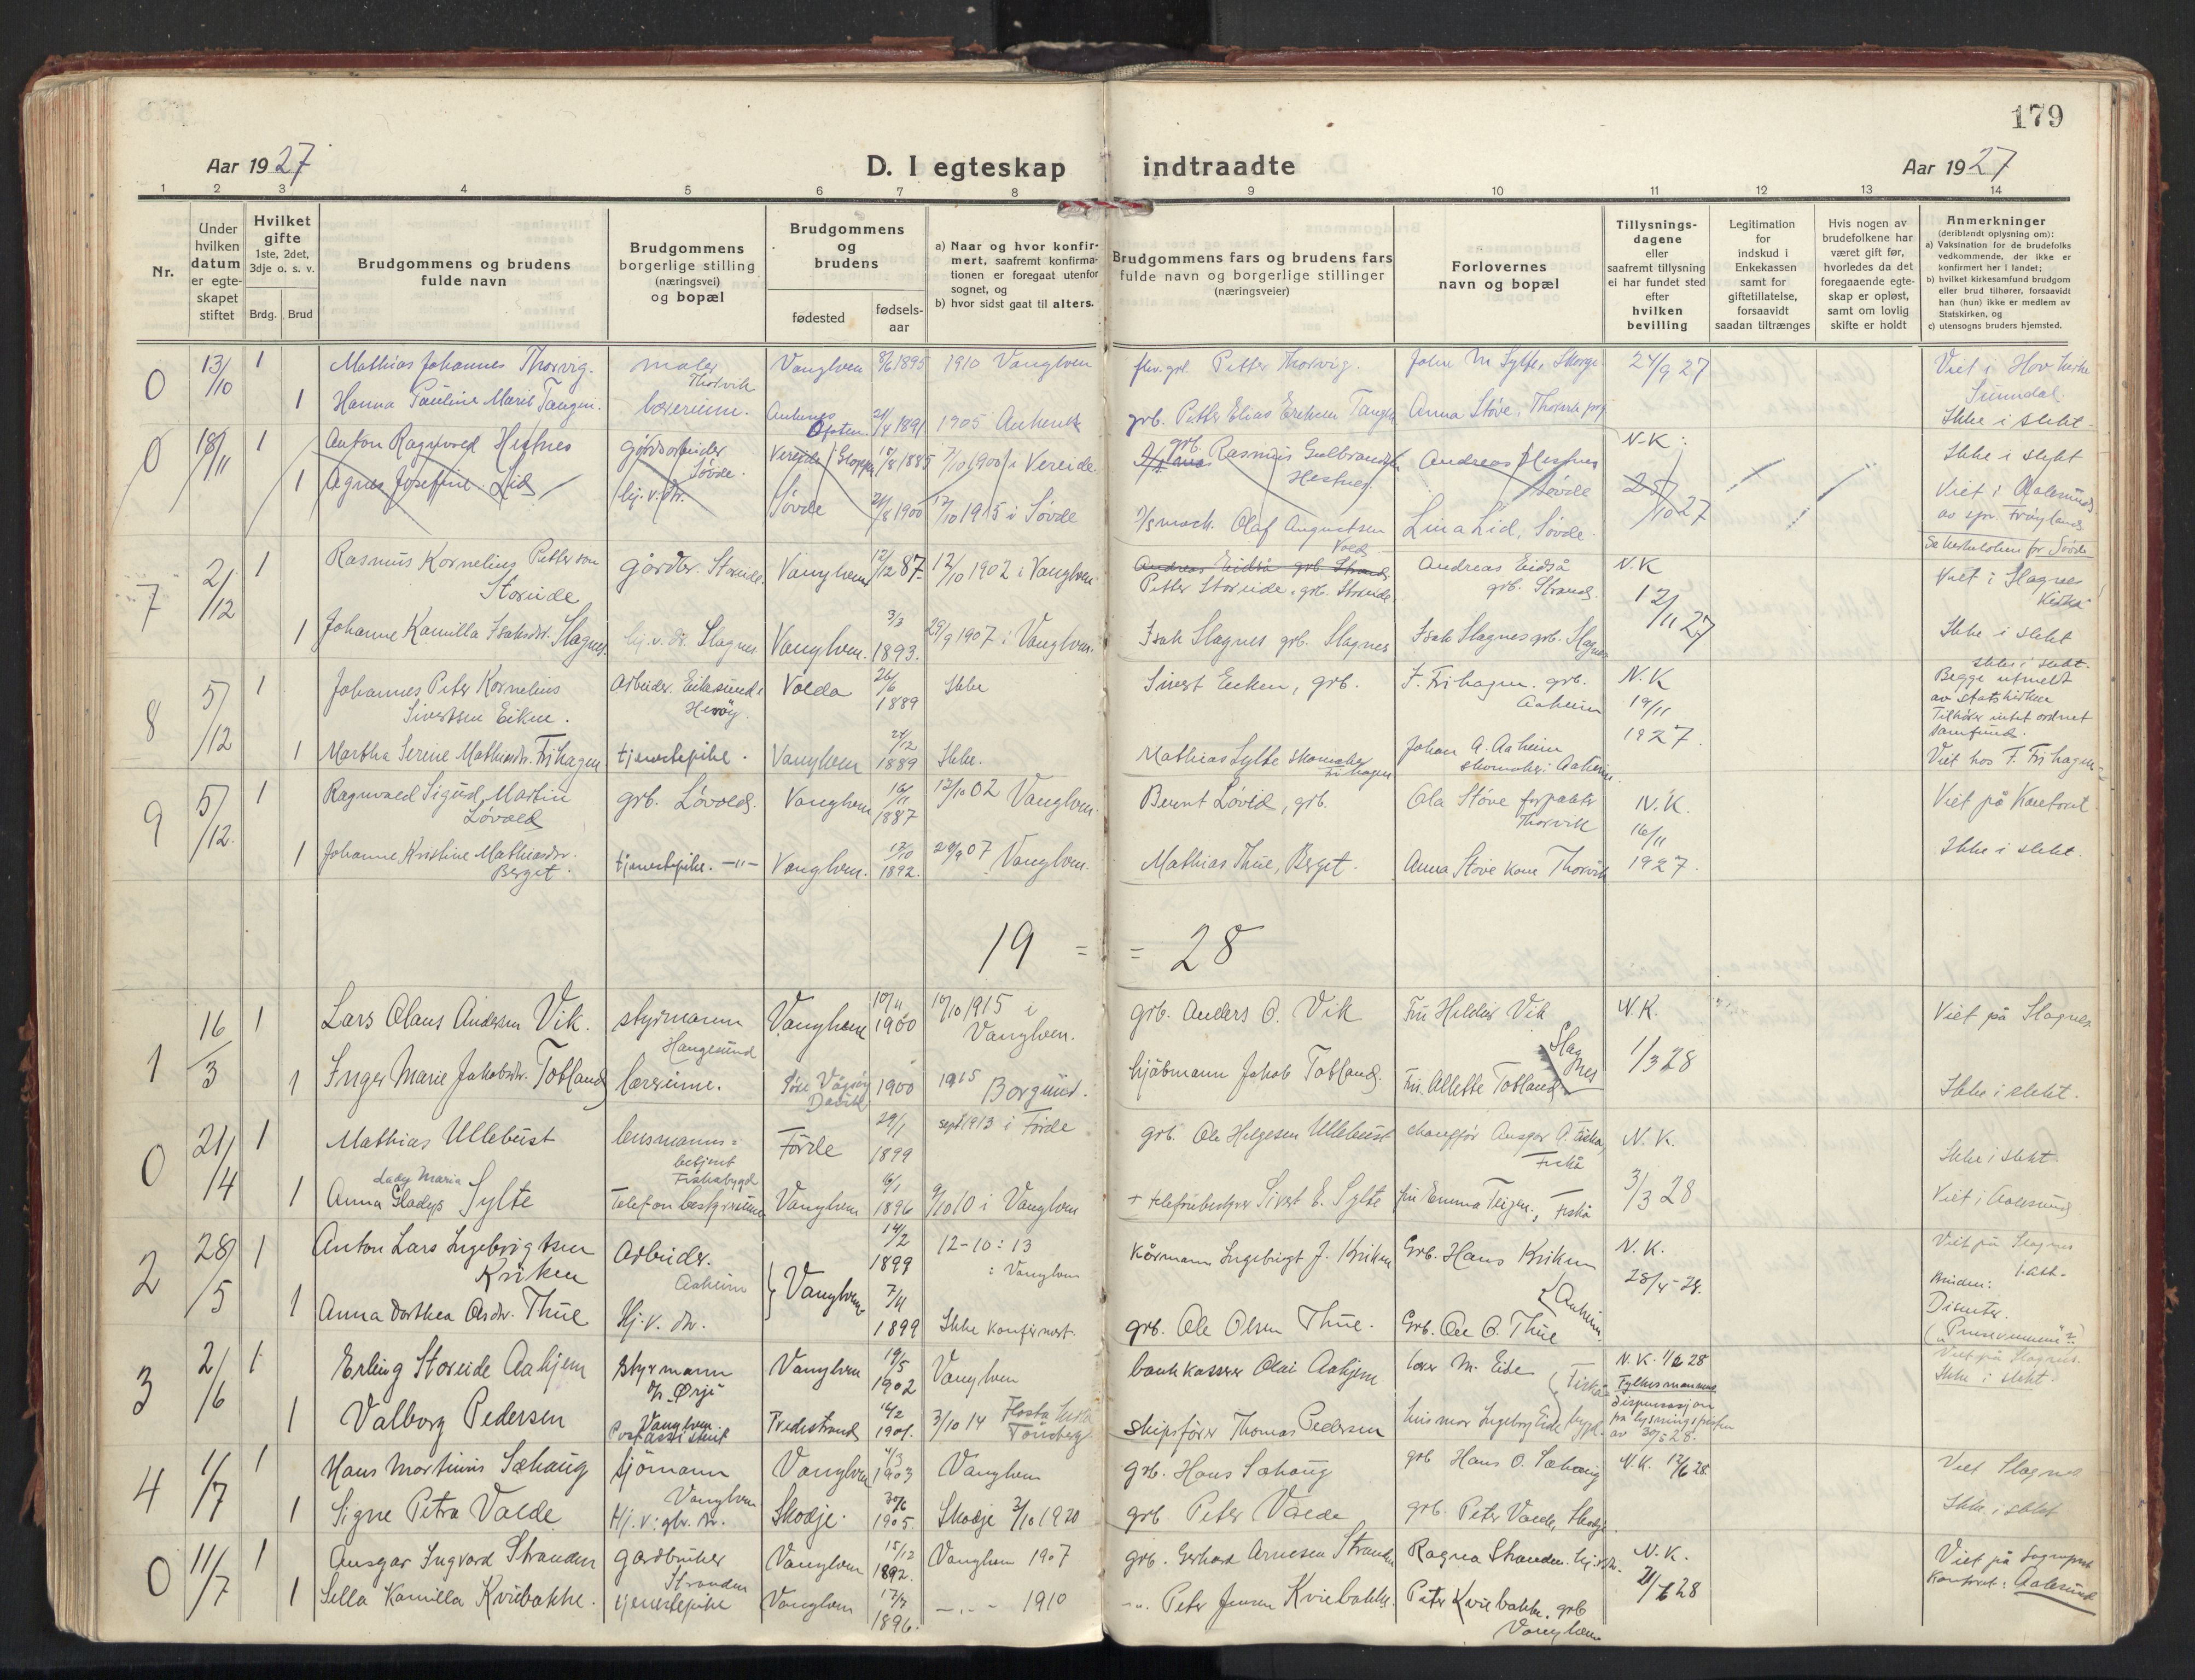 179
Aar 1927
D. I egteskap indtraadte
Aar 1927
1 2 3 4 5 6 7 8 9 10 11 12 13 14
Nr.
Under hvilken datum er egteskapet stiftet
Hvilket gifte 1ste, 2det, 3dje o. s. v.
Brdg. Brud
Brudgommens og brudens fulde navn
Brudgommens borgerlige stilling (næringsvei) og bopæl
Brudgommens og brudens
fødested
fødsels-aar
a) Naar og hvor konfirmert, saafremt konfirmationen er foregaat utenfor sognet, og
b) hvor sidst gaat til alters.
Brudgommens fars og brudens fars fulde navn og borgerlige stillinger (næringsveier)
Forlovernes navn og bopæl
Tillysningsdagene eller saafremt tillysning ei har fundet sted efter hvilken bevilling
Legitimation for indskud i Enkekassen samt for giftetillatelse, forsaavidt saadan tiltrænges
Hvis nogen av brudefolkene har været gift før, hvorledes da det foregaaende egteskap er opløst, samt om lovlig skifte er holdt
Anmerkninger (deriblandt oplysning om):
a) Vaksination for de brudefolks vedkommende, der ikke er konfirmert her i landet;
b) hvilket kirkesamfund brudgom eller brud tilhører, forsaavidt han (hun) ikke er medlem av Statskirken, og
c) utensogns bruders hjemsted.
0 13/10 1 Mathias Johannes Thorvig. maler Thorvik Vanylven 8/6 1895 1910 Vanylven Petter Thorvig. John M Sylte, 24/9 27 Viet i Hov kirke Sunndal.
1 Hanna Pauline Marie Tangen. lærerinne. 21/4 1891 1905 grb. Petter Elias Eriksen Tangen Anna Støve, Thorvik Ikke i slekt
0 18/11 1 Anton Ragnvald Hestnes gårdsarbeider Søvde. Vereide i Gloppen 18/8 1885 7/10 1900 i Vereide grb. Rasmus Gulbrandsen Hestnes Andreas Hestnes Søvde N.K. 25/10 27 Ikke i slekt
1 Agnes Josefine Lid hj.v.dr. Søvde 21/8 1900 1915 i Søvde Olaf Augustsen Lina Lid, Søvde. Viet i Aalesund av spr. Frøyland
7 2/12 1 Rasmus Kornelius Petterson Storeide gårdbr. Storeide Vanylven 12/12 87. 12/10 1902 i Vanylven Andreas Eidså grb. Strand Petter Storeide, grb. Storeide. Andreas Eidså grb. Strand. N.K 12/11 27 Viet i Slagnes Kirke
1 Johanne Kamilla Isaksdr. Slagnes. hj.v.dr. Slagnes Vanylven. 3/3 1893. 29/9 1907 i Vanylven. Isak Slagnes grb. Slagnes Isak Slagnes grb. Slagnes Ikke i slekt
8 5/12 1 Johannes Peter Kornelius Sivertsen Eiken. Arbeider. Eiksund i Herøy. Volda 26/6 1889 Ikke Sivert Eiken, grb. F. Frihagen. grb. Aaheim N.K 19/11 1927. Ikke i slekt. Begge utmeldt av statskirken Tilhører intet ordnet samfund.
1 Martha Serine Mathiasdr. Frihagen tjenestepike. Vanylven 24/12 1889 Ikke. Mathias Sylte skomaker Frihagen Johan A. Aaheim skomaker Aaheim. Viet hos F. Frihagen
9 5/12 1 Ragnvald Sigurd Martin Løvold grb. Løvold. Vanylven 16/11 1887 12/10 02 Vanylven. Bernt Løvold, grb. Ola Støve forpakter Thorvik N.K. 16/11 1927. Viet på Kontoret.
1 Johanne Kristine Mathiasdr. Berget. tjenestepike. -"- Vanylven. 13/10 1892. 29/9 07 Vanylven. Mathias Thue, Berget. Anna Støve kone Thorvik Ikke i slekt.
19 = = 28
1 16/3 1 Lars Olaus Andersen Vik. styrmann Haugesund Vanylven 10/11 1900 10/10 1915 i Vanylven. grb. Anders O. Vik N.K. 1/3 28 Viet på Slagnes
1 Inger Marie Jakobsdr. Totland lærerinne. 1900 1915 Borgund. Jakob Totland. Fru. Allette Totland Slagnes Ikke i slekt.
0 21/4 1 Mathias Ullebust lensmannsbetjent Fiskabygd Førde 29/1 1899 sept 1913 i Førde grb. Ole Helgesen Ullebust chauffør Ansgar O. Fiskå, Fiskå N.K. 3/3 28 Ikke i slekt.
1 Anna Lady Maria Gladys Sylte Telefonbestyrerinne Vanylven 6/1 1896 9/10 10 i Vanylven + telefonbestyrer Sivert E. Sylte fru Emma Teigen, Fiskå Viet i Aalesund
2 28/5 1 Anton Lars Ingebrigtsen Kriken Arbeider. Aaheim Vanylven 14/2 1899 12-10-13 i Vanylven Ingebrigt J. Kriken Grb. Hans Kriken N.K. 28/4-28. Viet på Slagnes
1 Anna Dorthea Olsdr. Thue Hj.v.dr. 7/11 1899 Ikke konfirmert. grb. Ole Olsen Thue. Grb. Ole O. Thue Aaheim. Bruden: Disenter.
3 2/6 1 Erling Storeide Aahjem Styrmann Vanylven 19/5 1902 Vanylven bankkasserer Olai Aahjem lærer M. Eide Fiskåbygd N.K. 1/6 28 Fylkesmannens dispensasjon fra lysningsfristen av 30/5 28. Viet på Slagnes. Ikke i slekt.
1 Valborg Pedersen Vanylven. Postassistent Tvedestrand 16/2 1901. 3/10 14 Flosta Tønsberg skipsfører Thomas Pedersen Ingeborg Eide
4 1/7 1 Hans Martinus Sæhaug sjømann Vanylven Vanylven 4/3 1903 Vanylven grb. Hans Sæhaug grb Hans O. Sæhaug N.K. 12/6 28. Viet Slagnes
1 Signe Petra Valde Hj.v. gbr. dr. Skodje. 30/6 1905. Skodje 3/10 1920 grb Peter Valde grb. Peter Valde, Skodje. Ikke i slekt
0 11/7 1 Ansgar Ingvard Stranden gardbruker Stranden Vanylven 15/12 1892. Vanylven 1907 grb. Gerhard Arnesen Stranden Ragna Stranden. hj.v.dr. N.K. 21/6 28 Viet på Sogneprest kontoret i Aalesund
1 Sella Kamilla Kviebakke. tjenestepike Vanylven 17/7 1896. -"- 1910 -"- Peter Jensen Kviebakke. Peter Kviebakke. grb Vanylven